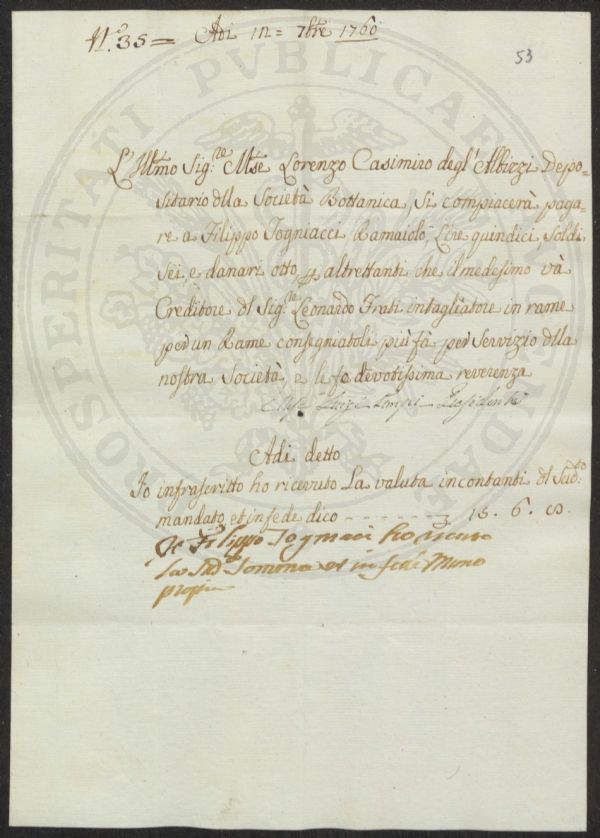 N.º 35 = Adi 12 = 7bre 1760
53
L'Illmo Sig.re Mse Lorenzo Casimiro degl'Albizzi Depo-
sitario dlla Società Bottanica, Si compiacerà paga-
re a Filippo Togniacci Ramaiolo, Lire quindici, Soldi
Sei, e danari otto, p altrettanti che il medesimo và
Creditore dl Sig.re Leonardo Frati intagliatore in rame
per un Rame consegniatoli più fà, per servizio dlla
nostra Società, e li fo devotissima reverenza
Luigi Presidente
Adi detto
Io infrascritto ho ricevuto La valuta incontanti dl Sud.to
mandato, et in fede dico - - - - - - 15. 6. 8
Io Filippo Togniacci ho riceuto
la Sud.a Somma et in fede Mano
propia
PROSPERITATI PUBLICAE AUGENDAE